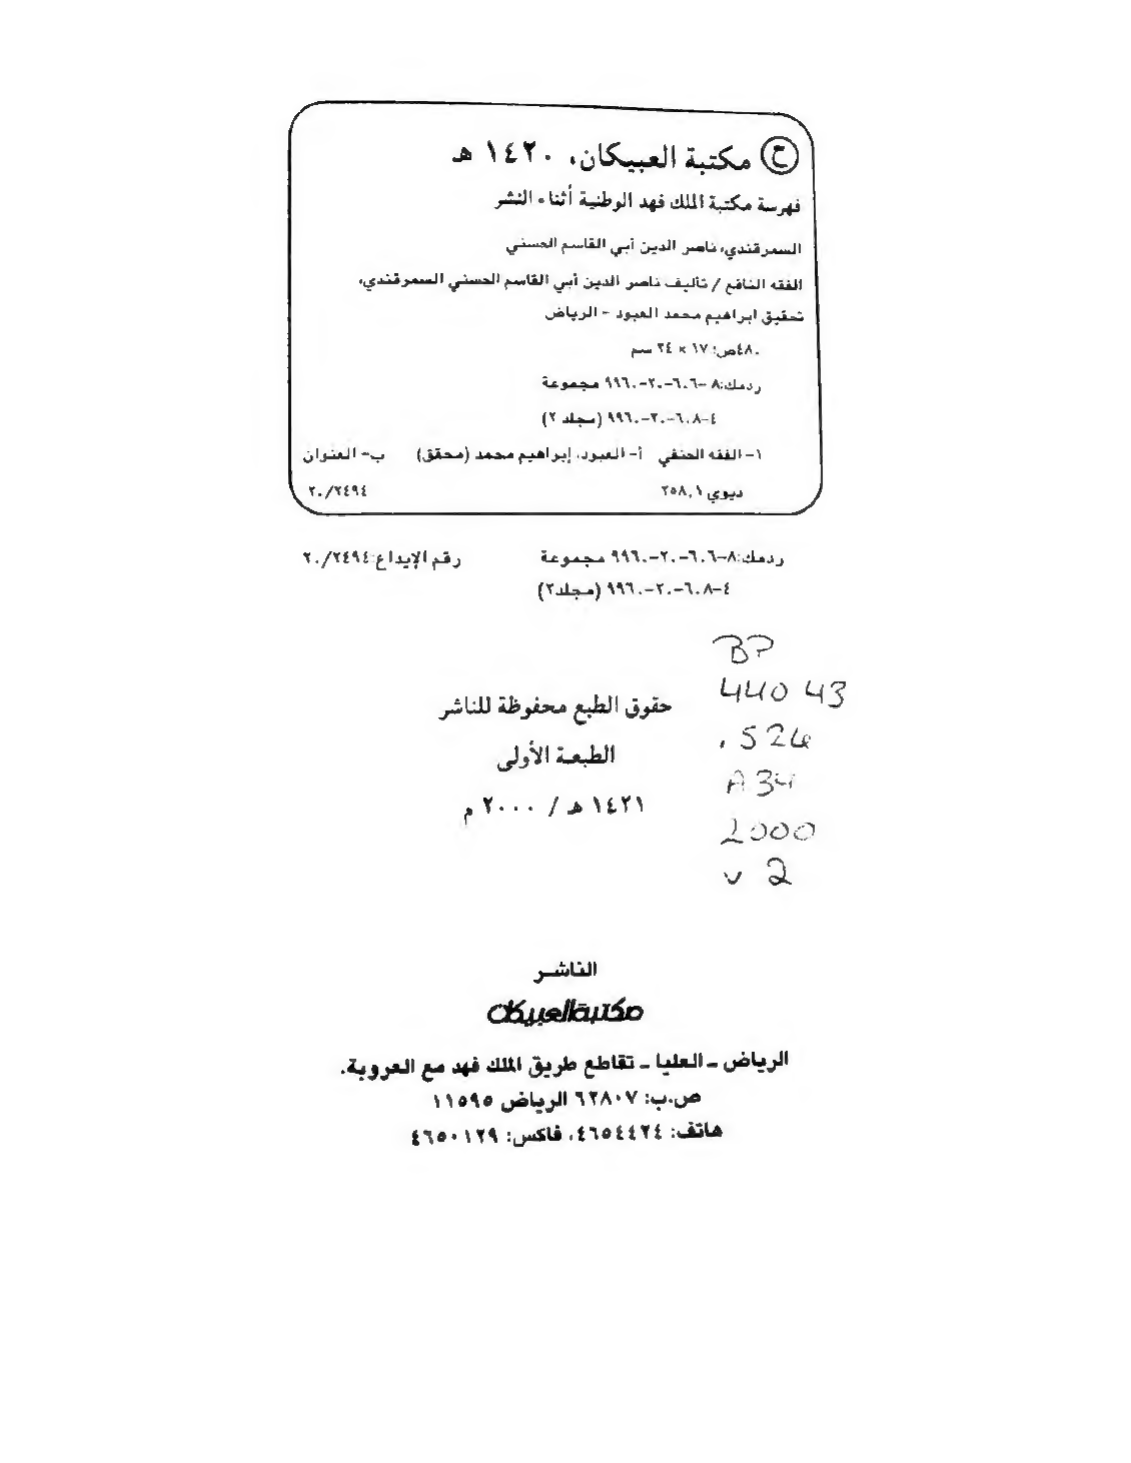 ح مكتبة العبيكان، ١٤٢٠ هـ
فهرسة مكتبة الملك فهد الوطنية أثناء النشر
السمرقندي، ناصر الدين أبي القاسم الحسني
الفقه النافع / تأليف ناصر الدين أبي القاسم الحسني السمرقندي،
تحقيق ابراهيم محمد العبود - الرياض
٤٨٠ص؛ ١٧ × ٢٤ سم
ردمك: ٨-٦٠٦-٢٠-٩٩٦٠ مجموعة
٤-٦٠٨-٢٠-٩٩٦٠ (مجلد ٢)
١- الفقه الحنفي أ- العبود، إبراهيم محمد (محقق) ب- العنوان
ديوي ٢٥٨,١ ٢٠/٢٤٩٤
ردمك: ٨-٦٠٦-٢٠-٩٩٦٠ مجموعة رقم الإيداع: ٢٠/٢٤٩٤
٤-٦٠٨-٢٠-٩٩٦٠ (مجلد٢)
BP
440 43
حقوق الطبع محفوظة للناشر
.S26
الطبعة الأولى
A34
١٤٢١ هـ / ٢٠٠٠ م
2000
v 2
الناشر
مكتبة العبيكان
الرياض ـ العليا ـ تقاطع طريق الملك فهد مع العروبة.
ص.ب: ٦٢٨٠٧ الرياض ١١٥٩٥
هاتف: ٤٦٥٤٤٢٤، فاكس: ٤٦٥٠١٢٩